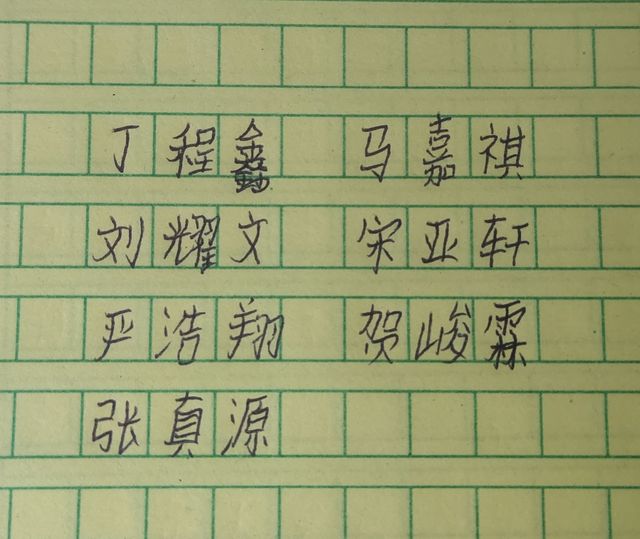 丁程鑫 马嘉祺
刘耀文 宋亚轩
严浩翔 贺峻霖
张真源